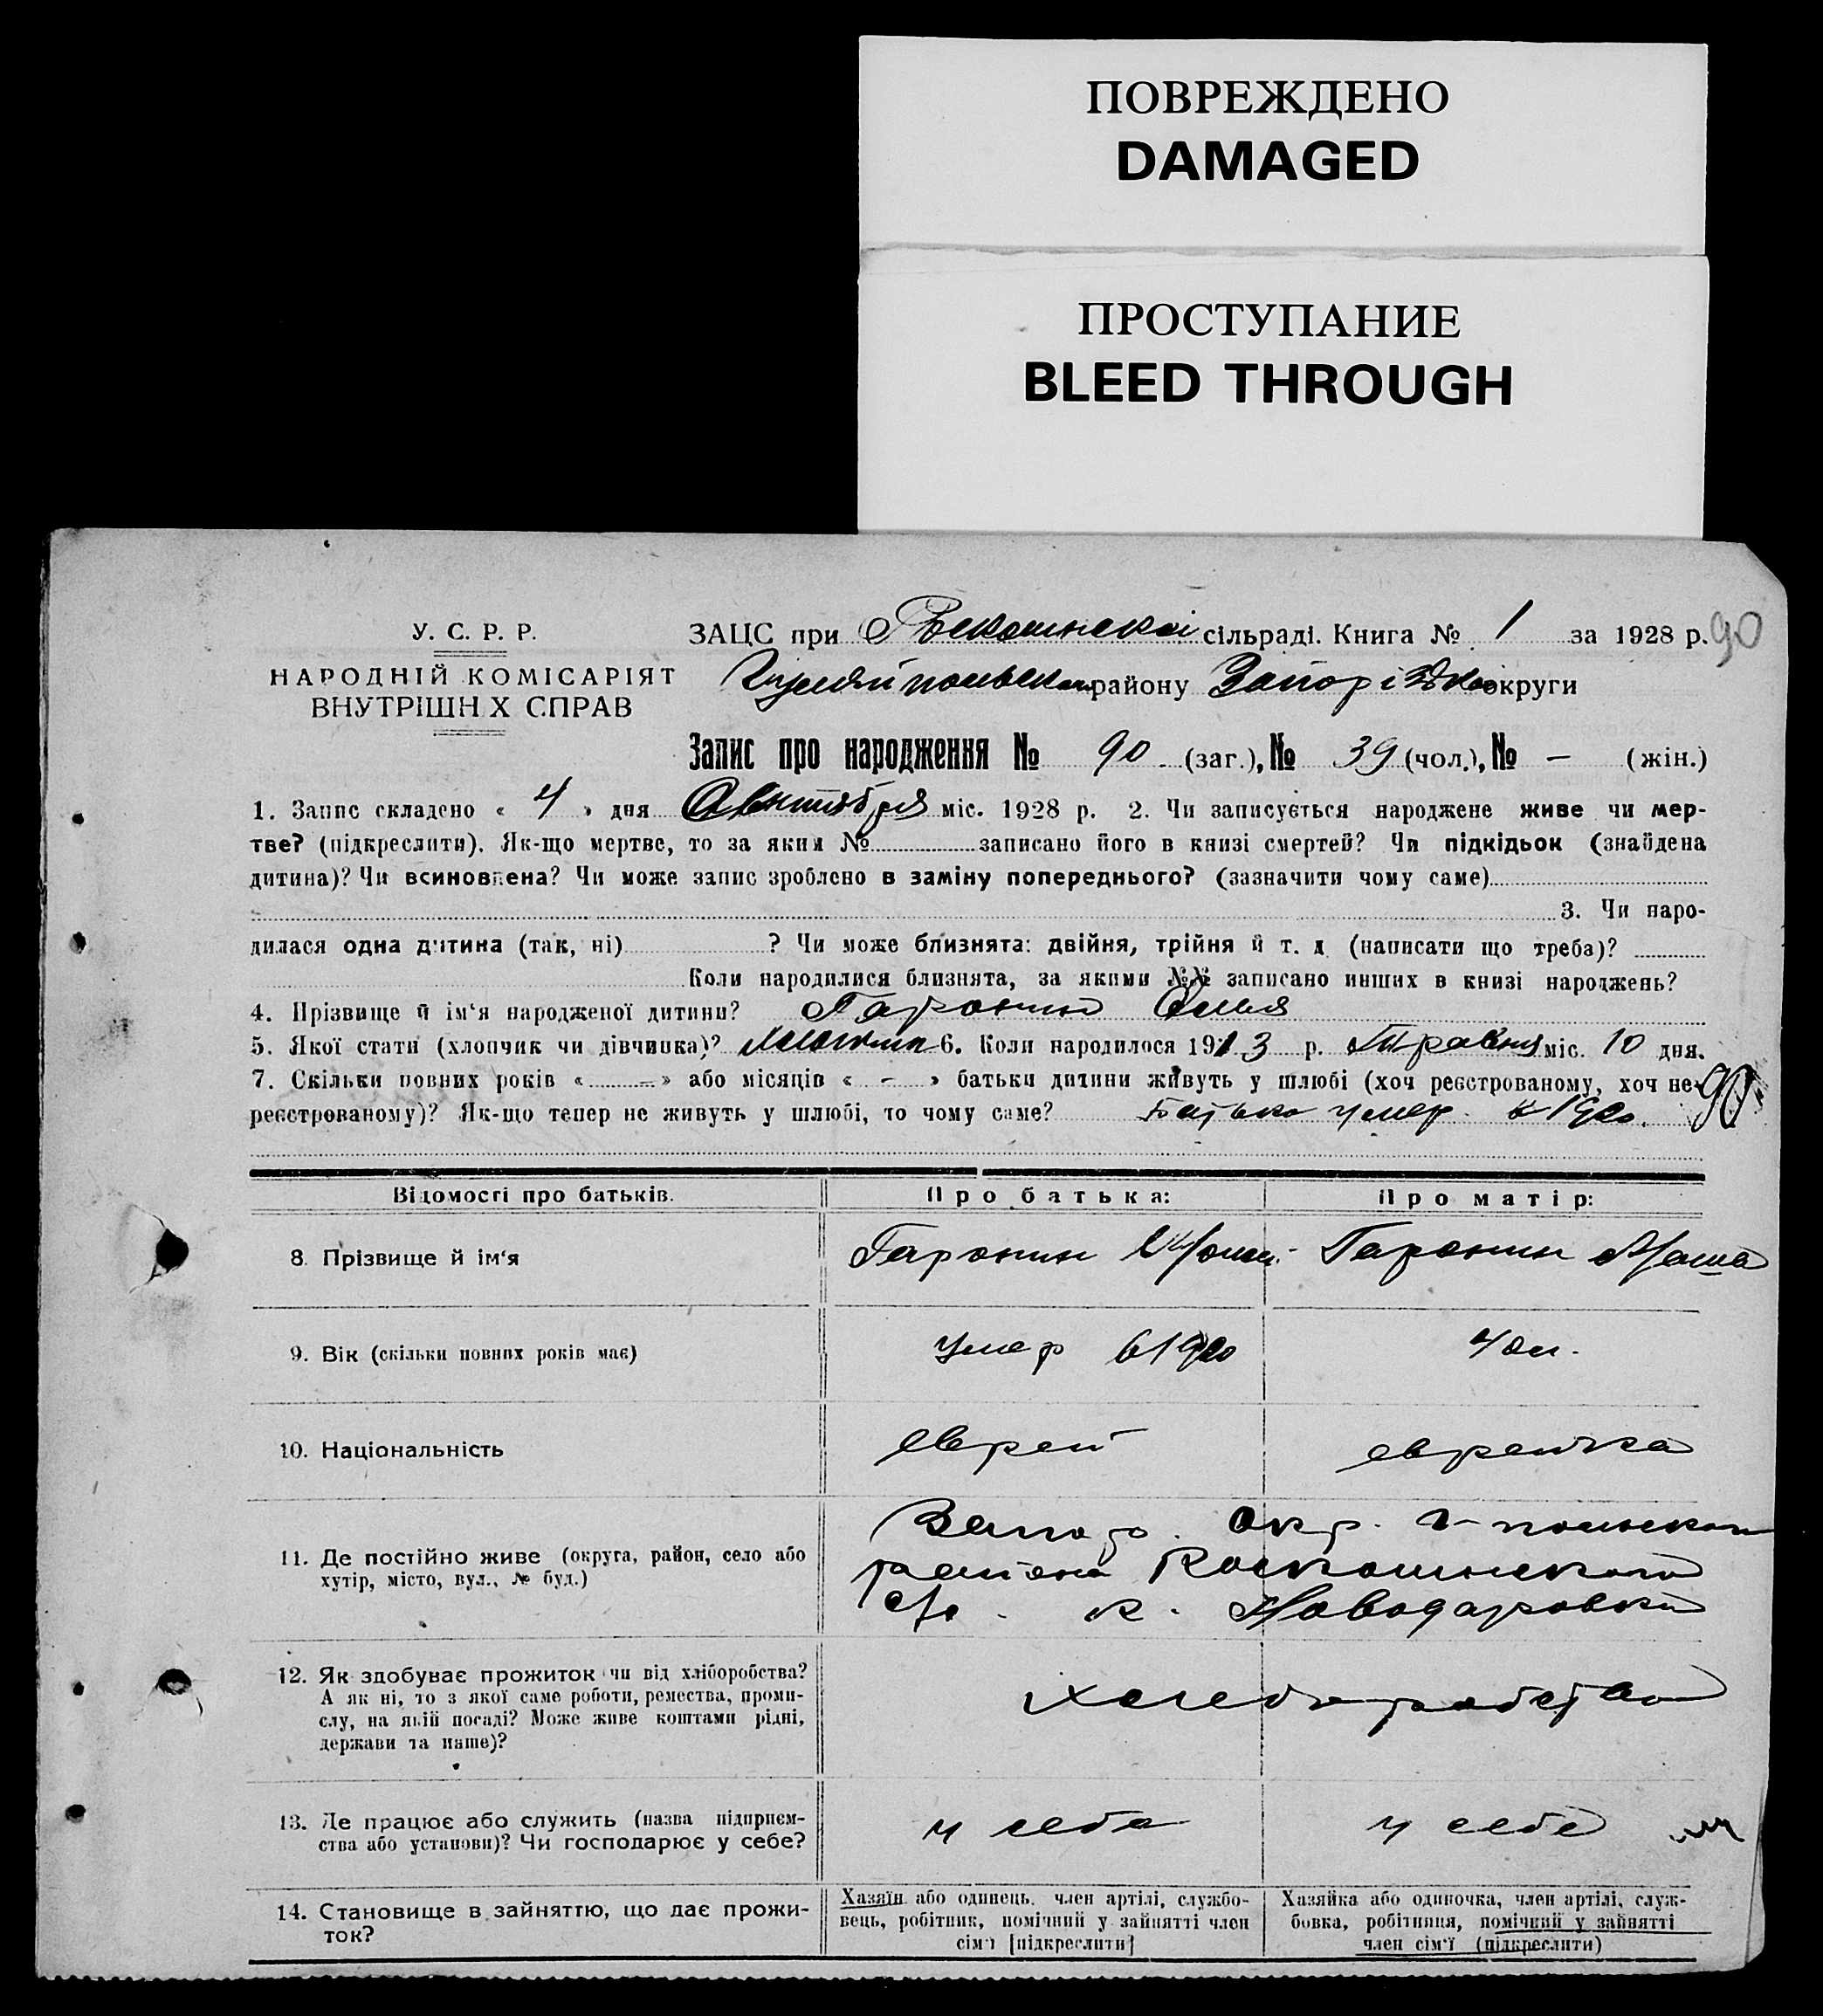 ПОВРЕЖДЕНО
DAMAGED
ПРОСТУПАНИЕ
BLEED THROUGH
У. С. Р. Р.
НАРОДНІЙ КОМІСАРІЯТ
ВНУТРІШН Х СПРАВ
ЗАЦС при сільраді. Книга № 1 за 1928 р. 90
району округи
Запис про народження № 90 (заг.), № 39 (чол.), № – (жін.)
1. Запис складено « 4 » дня Октября міс. 1928 р. 2. Чи записується народжене живе чи мер-
тве? (підкреслити). Як-що мертве, то за яким № записано його в книзі смертей? Чи підкідьок (знайдена
дитина)? Чи всиновлена? Чи може запис зроблено в заміну попереднього? (зазначити чому саме)
3. Чи наро-
дилася одна дитина (так, ні) ? Чи може близнята: двійня, трійня й т. д. (написати що треба)?
Коли народилися близнята, за якими №№ записано инших в книзі народжень?
4. Прізвище й ім'я народженої дитини? Гаронин
5. Якої стати (хлопчик чи дівчинка)? 6. Коли народилося 1913 р. Травня міс. 10 дня.
7. Скільки повних років « – » або місяців « – » батьки дитини живуть у шлюбі (хоч реєстрованому, хоч не- 90
реєстрованому)? Як-що тепер не живуть у шлюбі, то чому саме? Батько умер в 1920.
Відомості про батьків. Про батька: Про матір:
8. Прізвище й ім'я Гаронин Гаронин Маша
9. Вік (скільки повних років має) Умер в 1920 40 л.
10. Національність еврей еврейка
11. Де постійно живе (округа, район, село або
хутір, місто, вул., № буд.)
Запор. Окр. польском
района Роскошинского
с/с. к. Новодаровки
12. Як здобуває прожиток чи від хліборобства?
А як ні, то з якої саме роботи, ремества, проми-
слу, на якій посаді? Може живе коштами рідні,
держави та инше)?
13. Де працює або служить (назва підприєм-
ства або установи)? Чи господарює у себе?
у себе у себе
14. Становище в зайняттю, що дає прожи-
ток?
Хазяїн або одинець, член артілі, службо-
вець, робітник, помічний у зайнятті член
сім'ї [підкреслити]
Хазяйка або одиночка, член артілі, служ-
бовка, робітниця, помічний у зайнятті
член сім'ї (підкреслити)